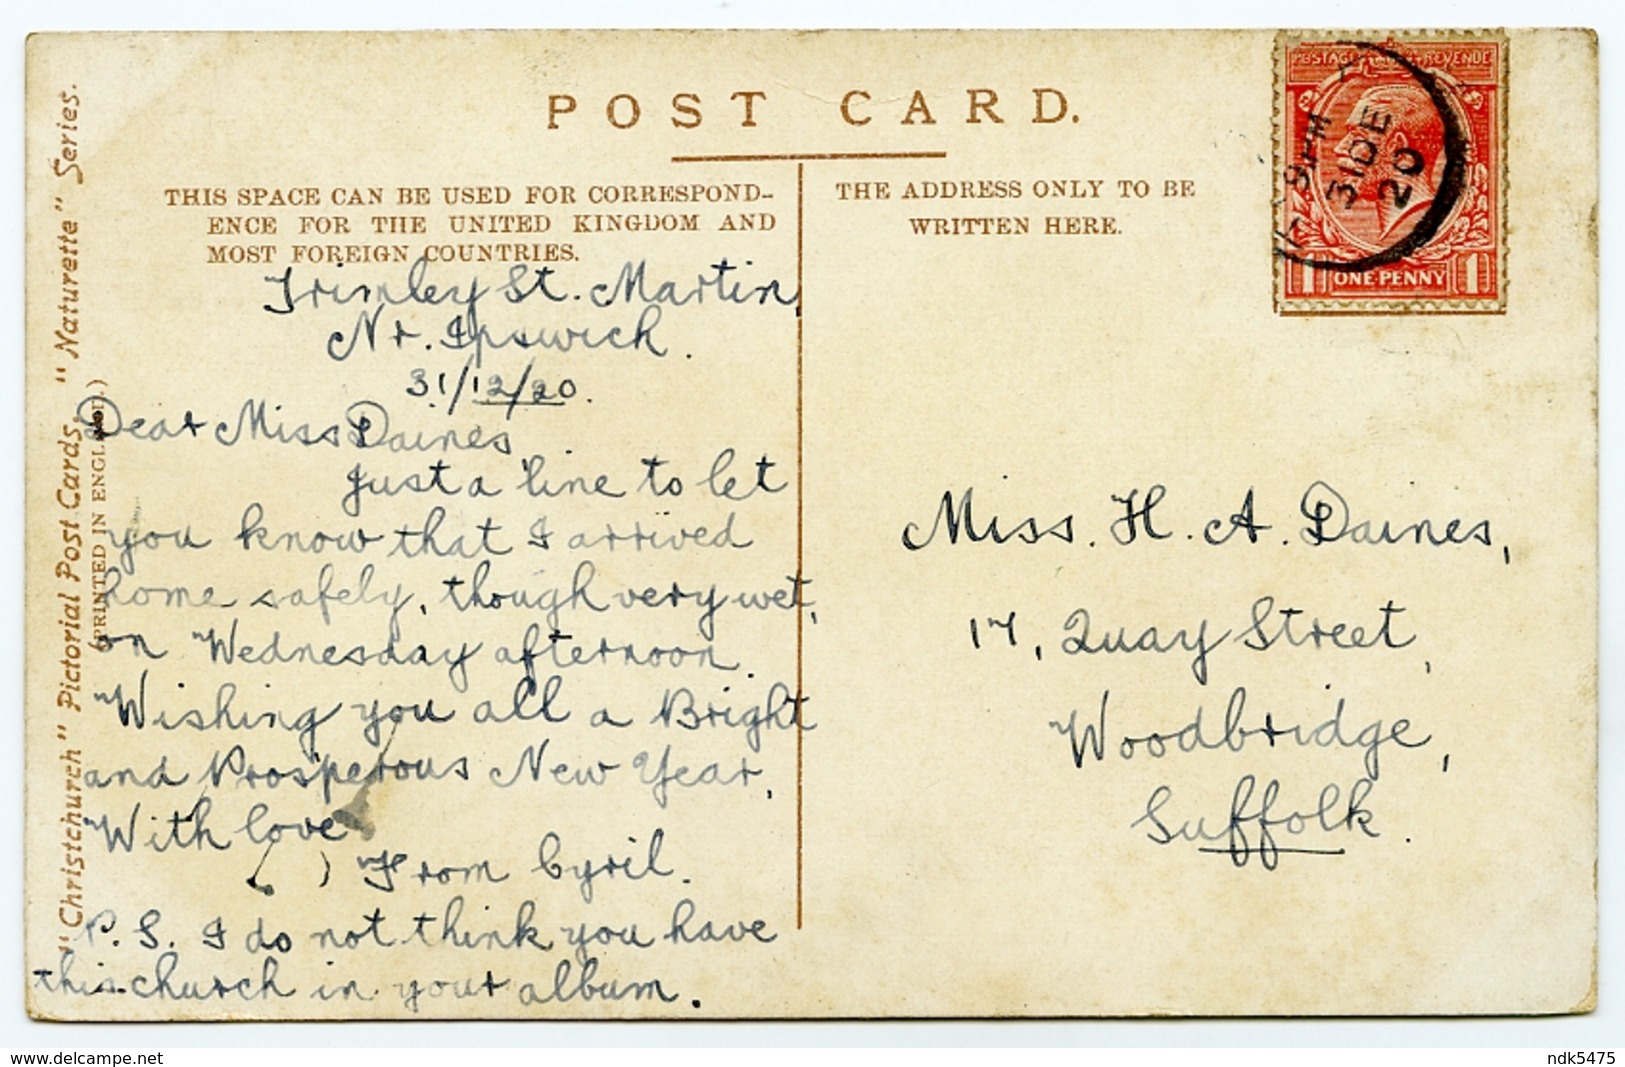 POST CARD.
THIS SPACE CAN BE USED FOR CORRESPOND-
ENCE FOR THE UNITED KINGDOM AND
MOST FOREIGN COUNTRIES.
Trimley St. Martin,
Nr. Ipswich.
31/12/20.
Dear Miss Daines,
Just a line to let
you know that I arrived
home safely, though very wet,
on Wednesday afternoon.
Wishing you all a Bright
and Prosperous New Year,
With love
From Cyril.
P.S. I do not think you have
this church in your album.
THE ADDRESS ONLY TO BE
WRITTEN HERE.
Miss. H. A. Daines,
17, Quay Street,
Woodbridge,
Suffolk.
POSTAGE REVENUE
9 PM
31 DE
20
1 ONE PENNY 1
"Christchurch" Pictorial Post Cards, "Naturette" Series.
(PRINTED IN ENGLAND.)
www.delcampe.net
ndk5475